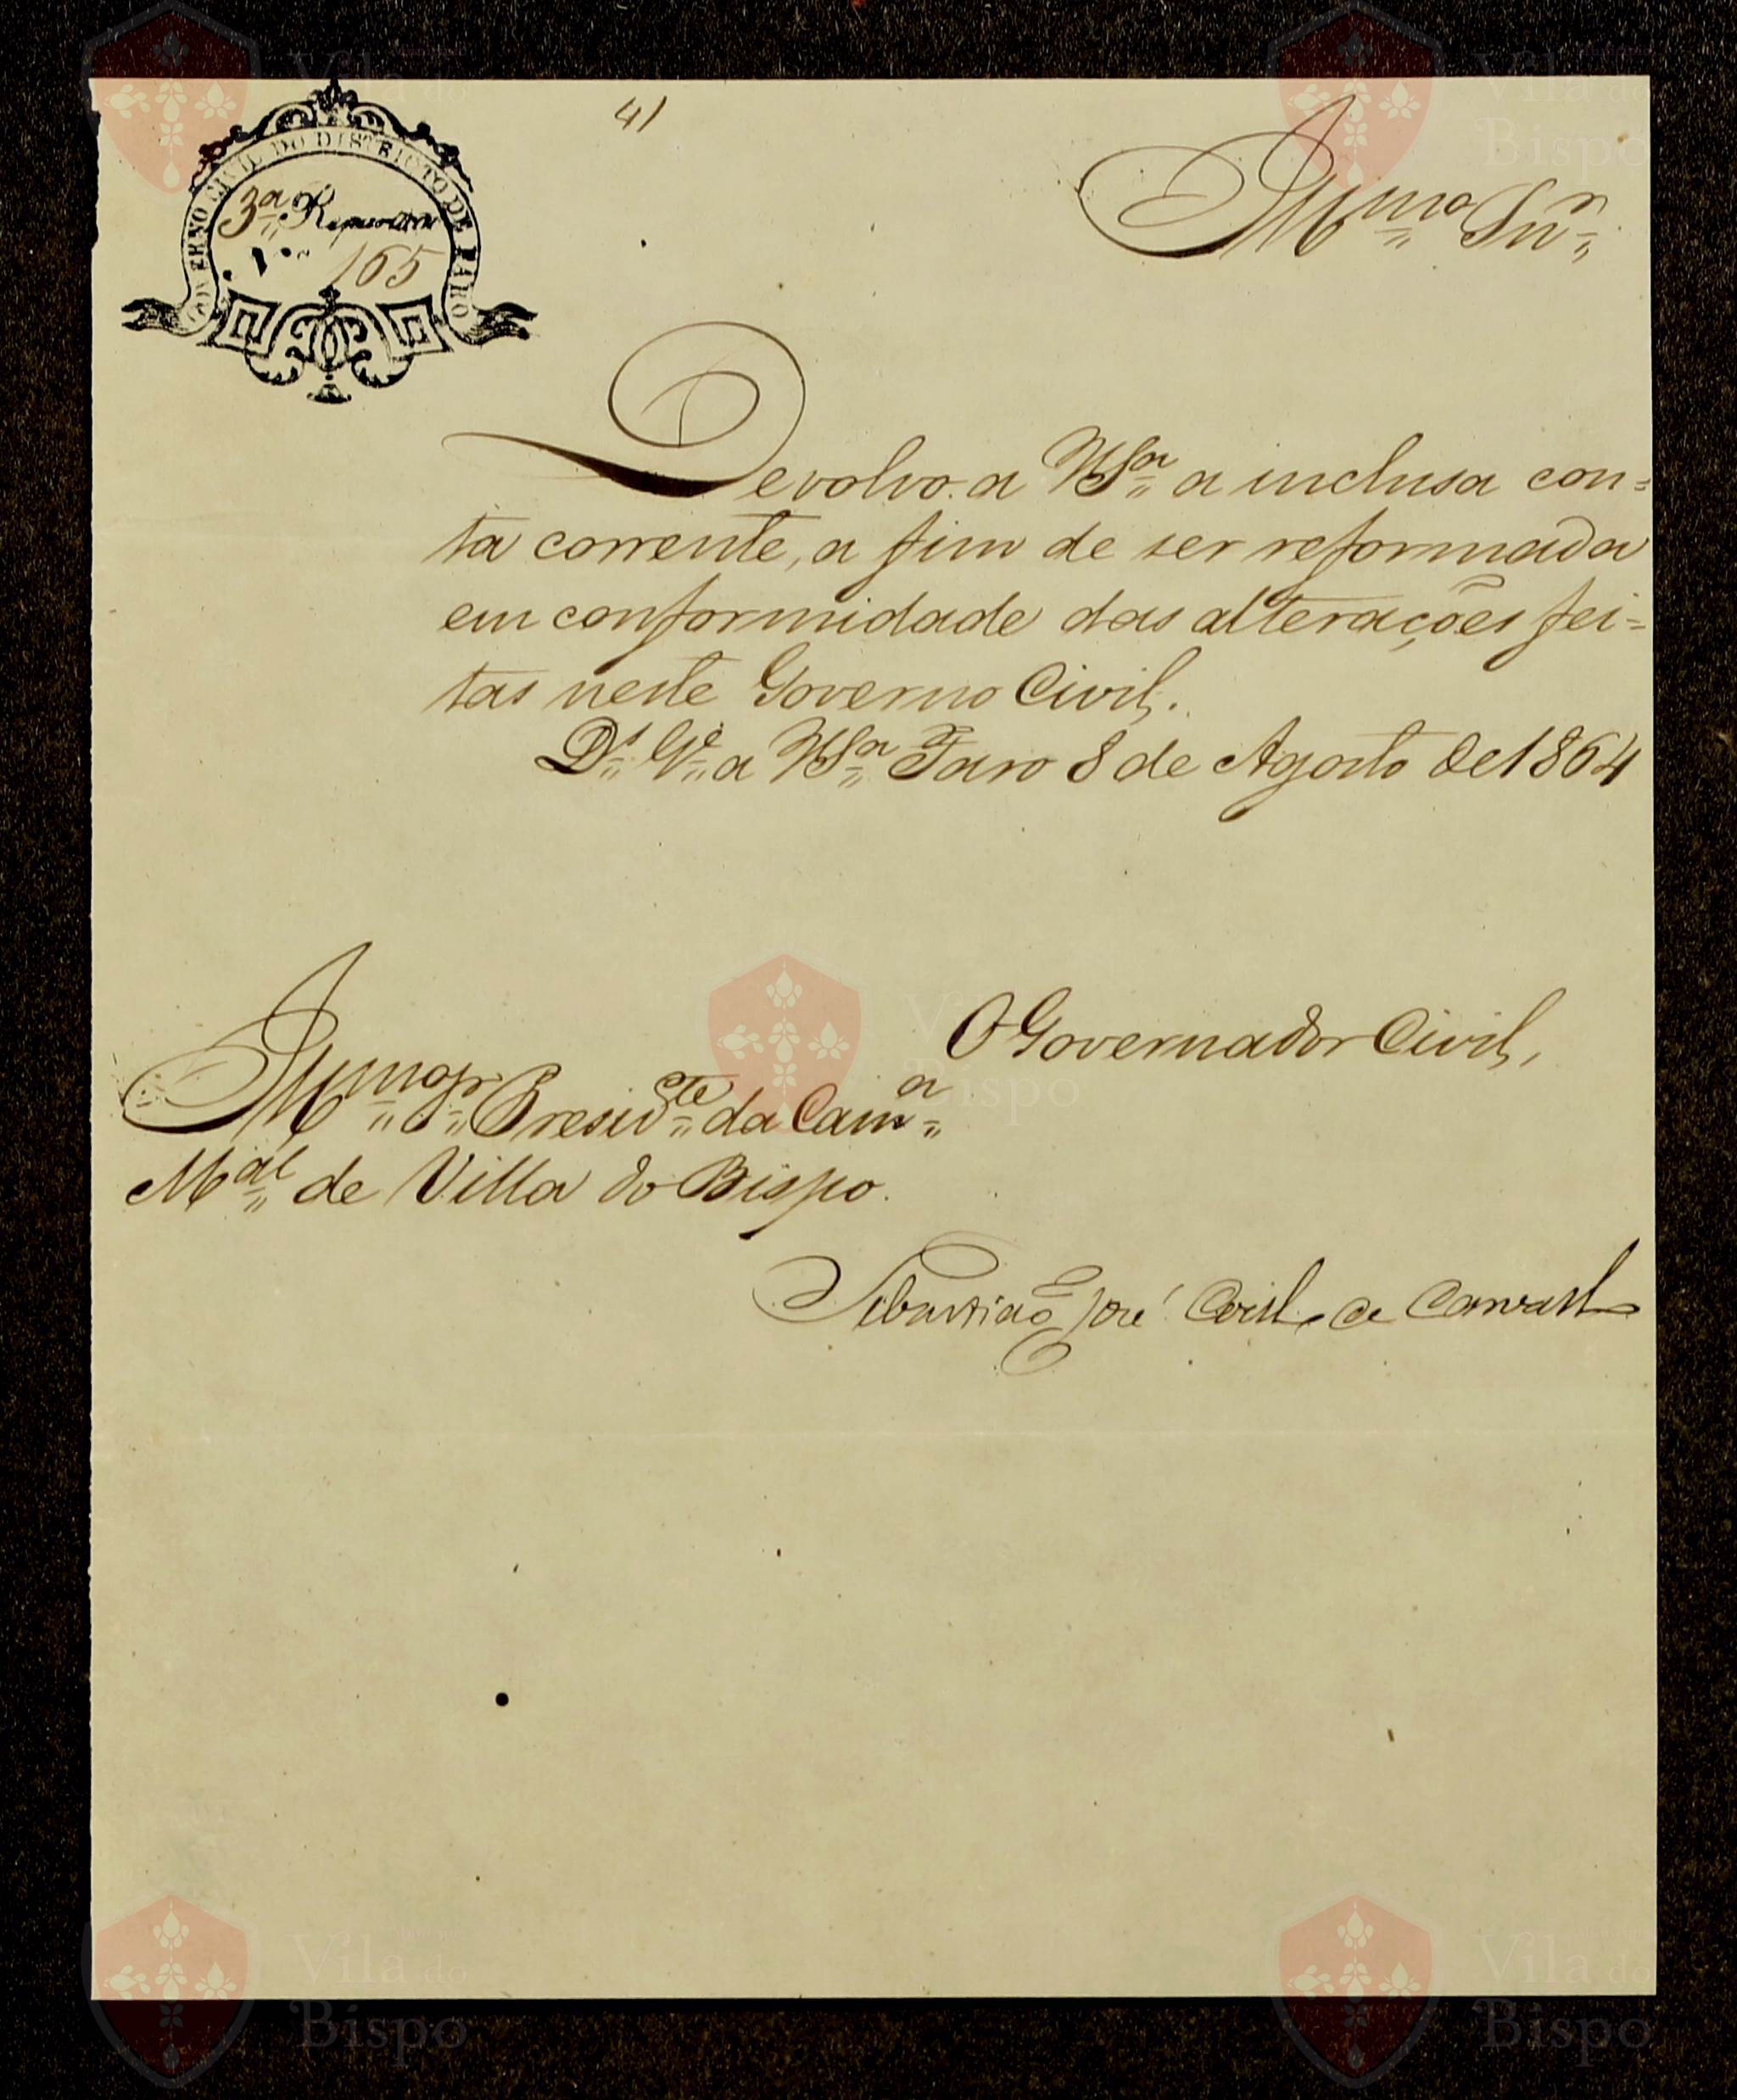 41
GOVERNO CIVIL DO DISTRICTO DE FARO
3ª Repartição
N.º 165
Illmo Snr
Devolvo a VSª a inclusa con=
ta corrente, a fim de ser reformada
em conformidade das alterações fei=
tas neste Governo Civil.
Ds Ge a VSª Faro 8 de Agosto de 1864
O Governador Civil,
Illmo Sr Presidte da Camª
Mal de Villa do Bispo.
Sebastião José de Carvalho
Vila do
Bispo
Vila do
Bispo
Vila do
Bispo
Vila do
Bispo